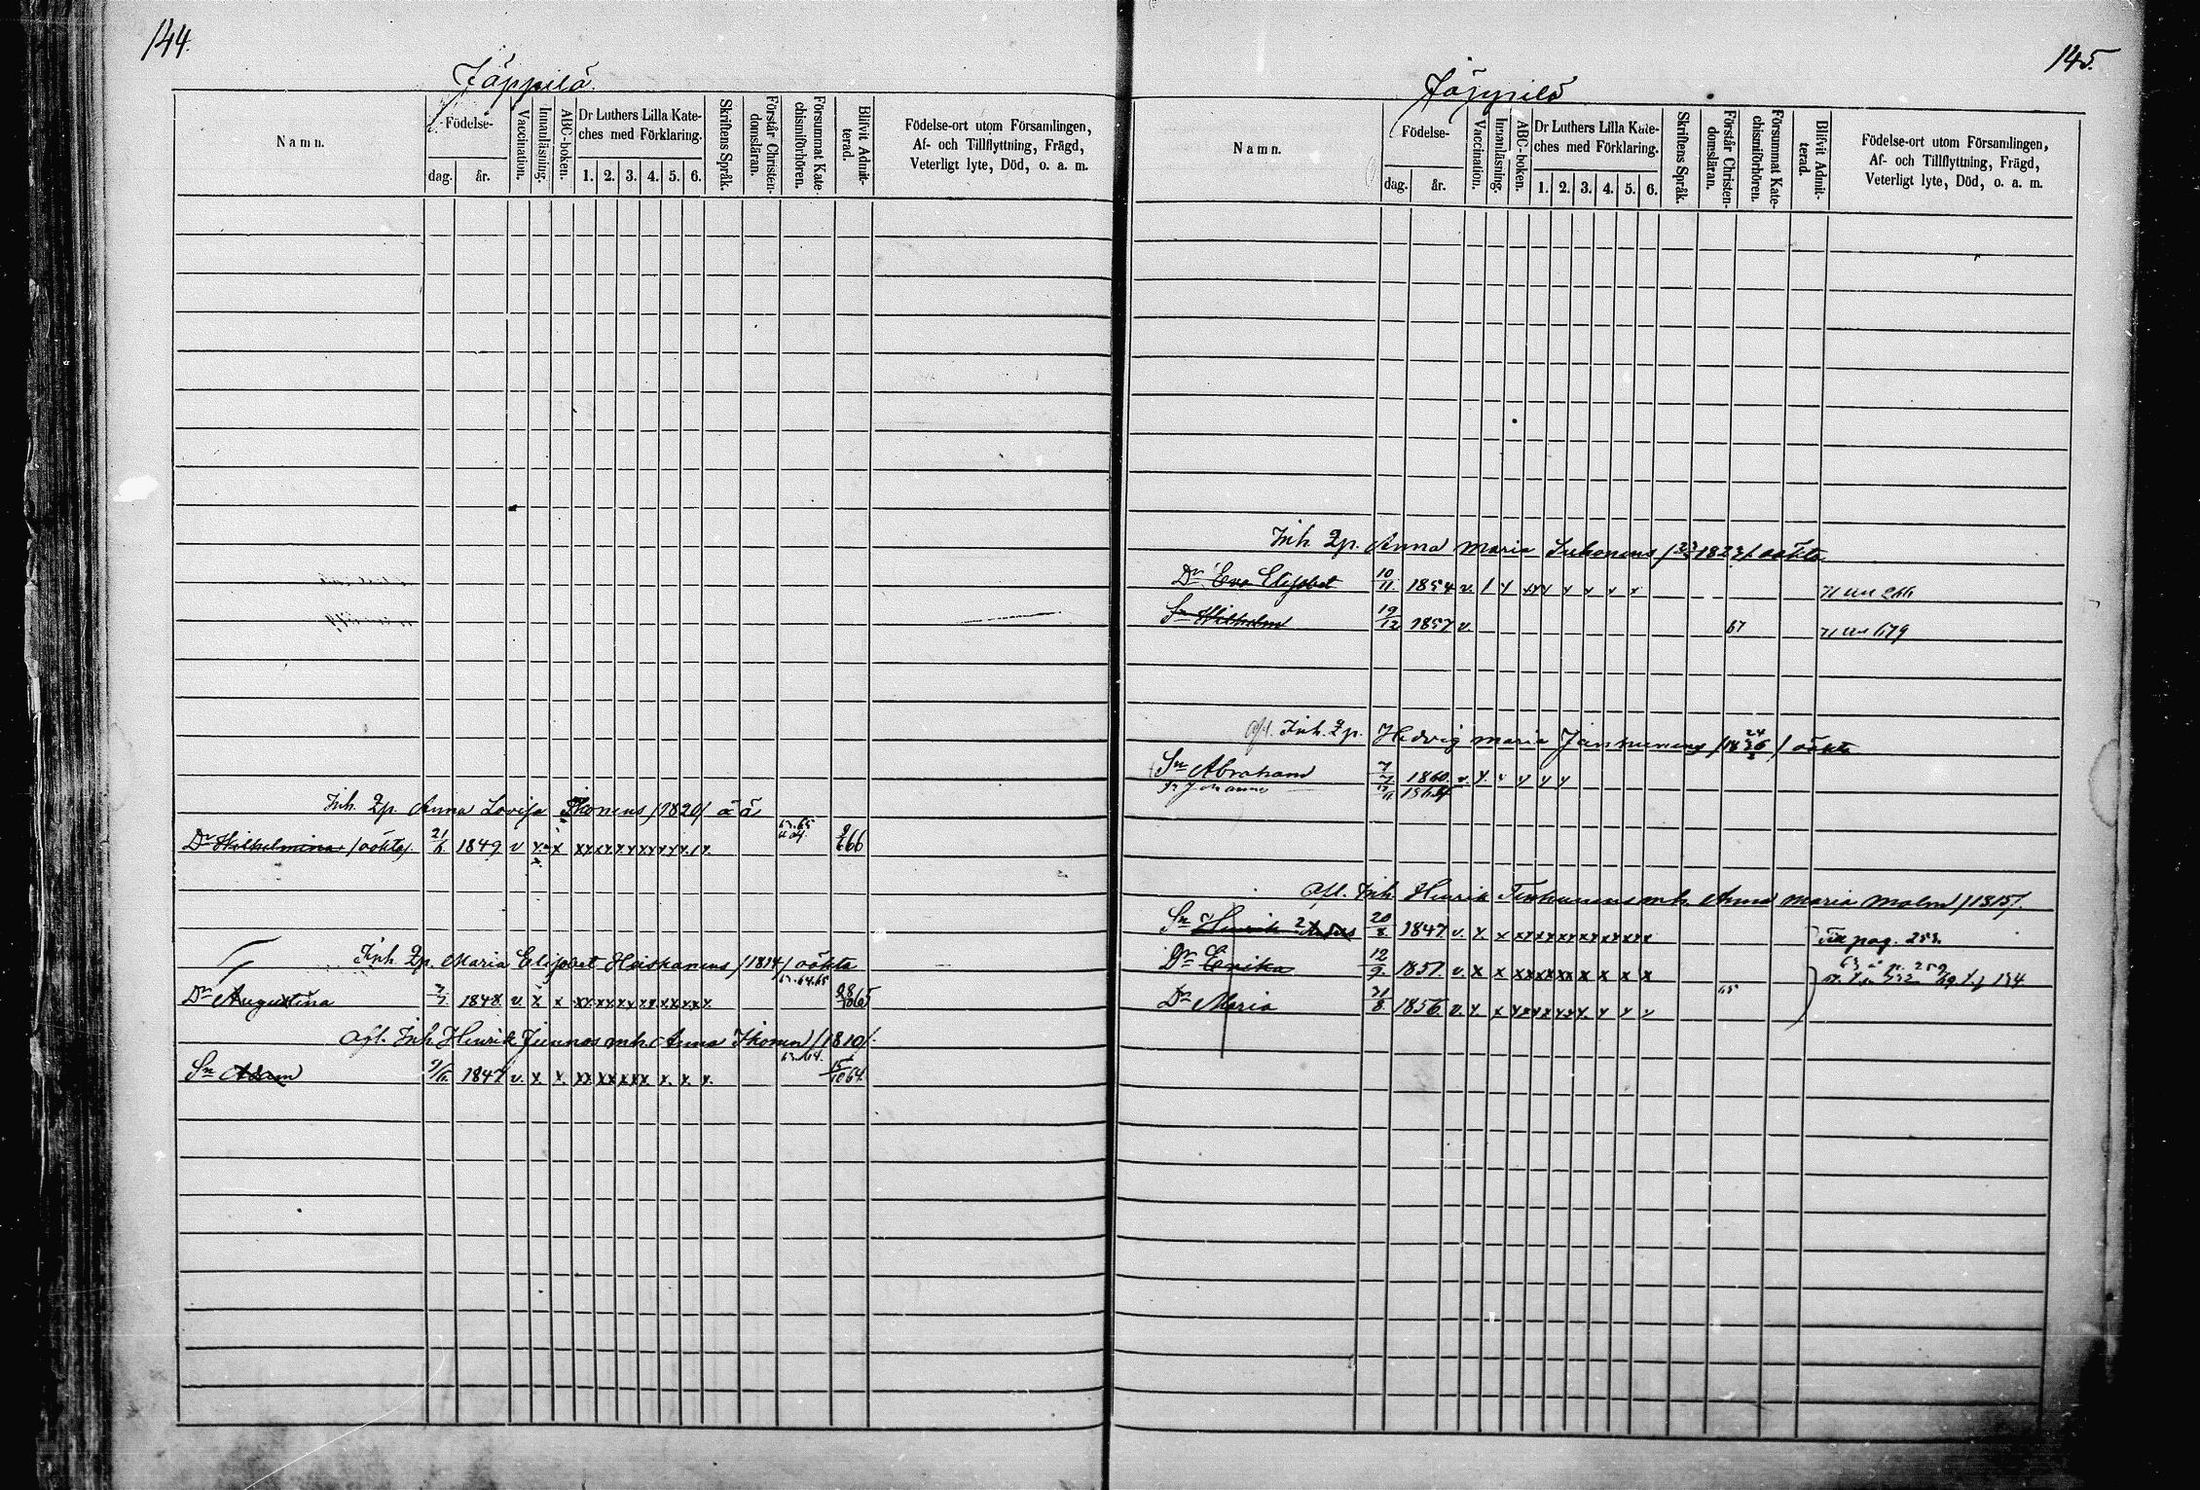 144.
Jäppilä
Namn.
Födelse-
dag.
år.
Vaccination.
Innanläsning.
ABC-boken.
Dr Luthers Lilla Kate-
ches med Förklaring.
1. 2. 3. 4. 5. 6.
Skriftens Språk.
Förstår Christen-
domsläran.
Försummat Kate-
chismiförhören.
Blifvit Admit-
terad.
Födelse-ort utom Församlingen,
Af- och Tillflyttning, Frägd,
Veterligt lyte, Död, o. a. m.
Inh. Qp. Anna Lovisa Ikonens /1820/ o ä
Dr Wilhelmina /oökta/ 21/6 1849 v x x xx xx xx xx xx x 66
Inh. Qp. Maria Elisabet Heiskanens /1814/ oökta
63.64.65
Dr Augustina 1848 v. x x xx xx xx xx xx xx 28/10 65
Afl. Inh. Henrik mh. Anna Ikonen /1810/.
63.64.
Sn Adam 9/6. 1847 v. x x. xx xx xx x. x. x. 15/10 64.
145.
Jäppilä
Namn.
Födelse-
dag.
år.
Vaccination.
Innanläsning.
ABC-boken.
Dr Luthers Lilla Kate-
ches med Förklaring.
1. 2. 3. 4. 5. 6.
Skriftens Språk.
Förstår Christen-
domsläran.
Försummat Kate-
chismiförhören.
Blifvit Admit-
terad.
Födelse-ort utom Församlingen,
Af- och Tillflyttning, Frägd,
Veterligt lyte, Död, o. a. m.
Inh. Qp. Anna Maria Suhonens oökta
Dr Eva Elisabet 10/11. 1854 v. x x x x x x
Sn Wilhelm 19/12 1857 v. 67
Afl. Inh. Qp. Hedvig Maria oökta
Sn Abraham 1860. v. x. x x x x
Sn Johannes
Afl. Inh. Henrik mh. Anna Maria Malm /1815/.
Sn Henrik 20/8. 1847. v. x. x xx xx xx xx xx xx Till pag. 253.
Dr Erika 12/9. 1851 v. x x xx xx xx x x x
Dr Maria 31/8. 1856. v. x. x xx xx xx x x x 65